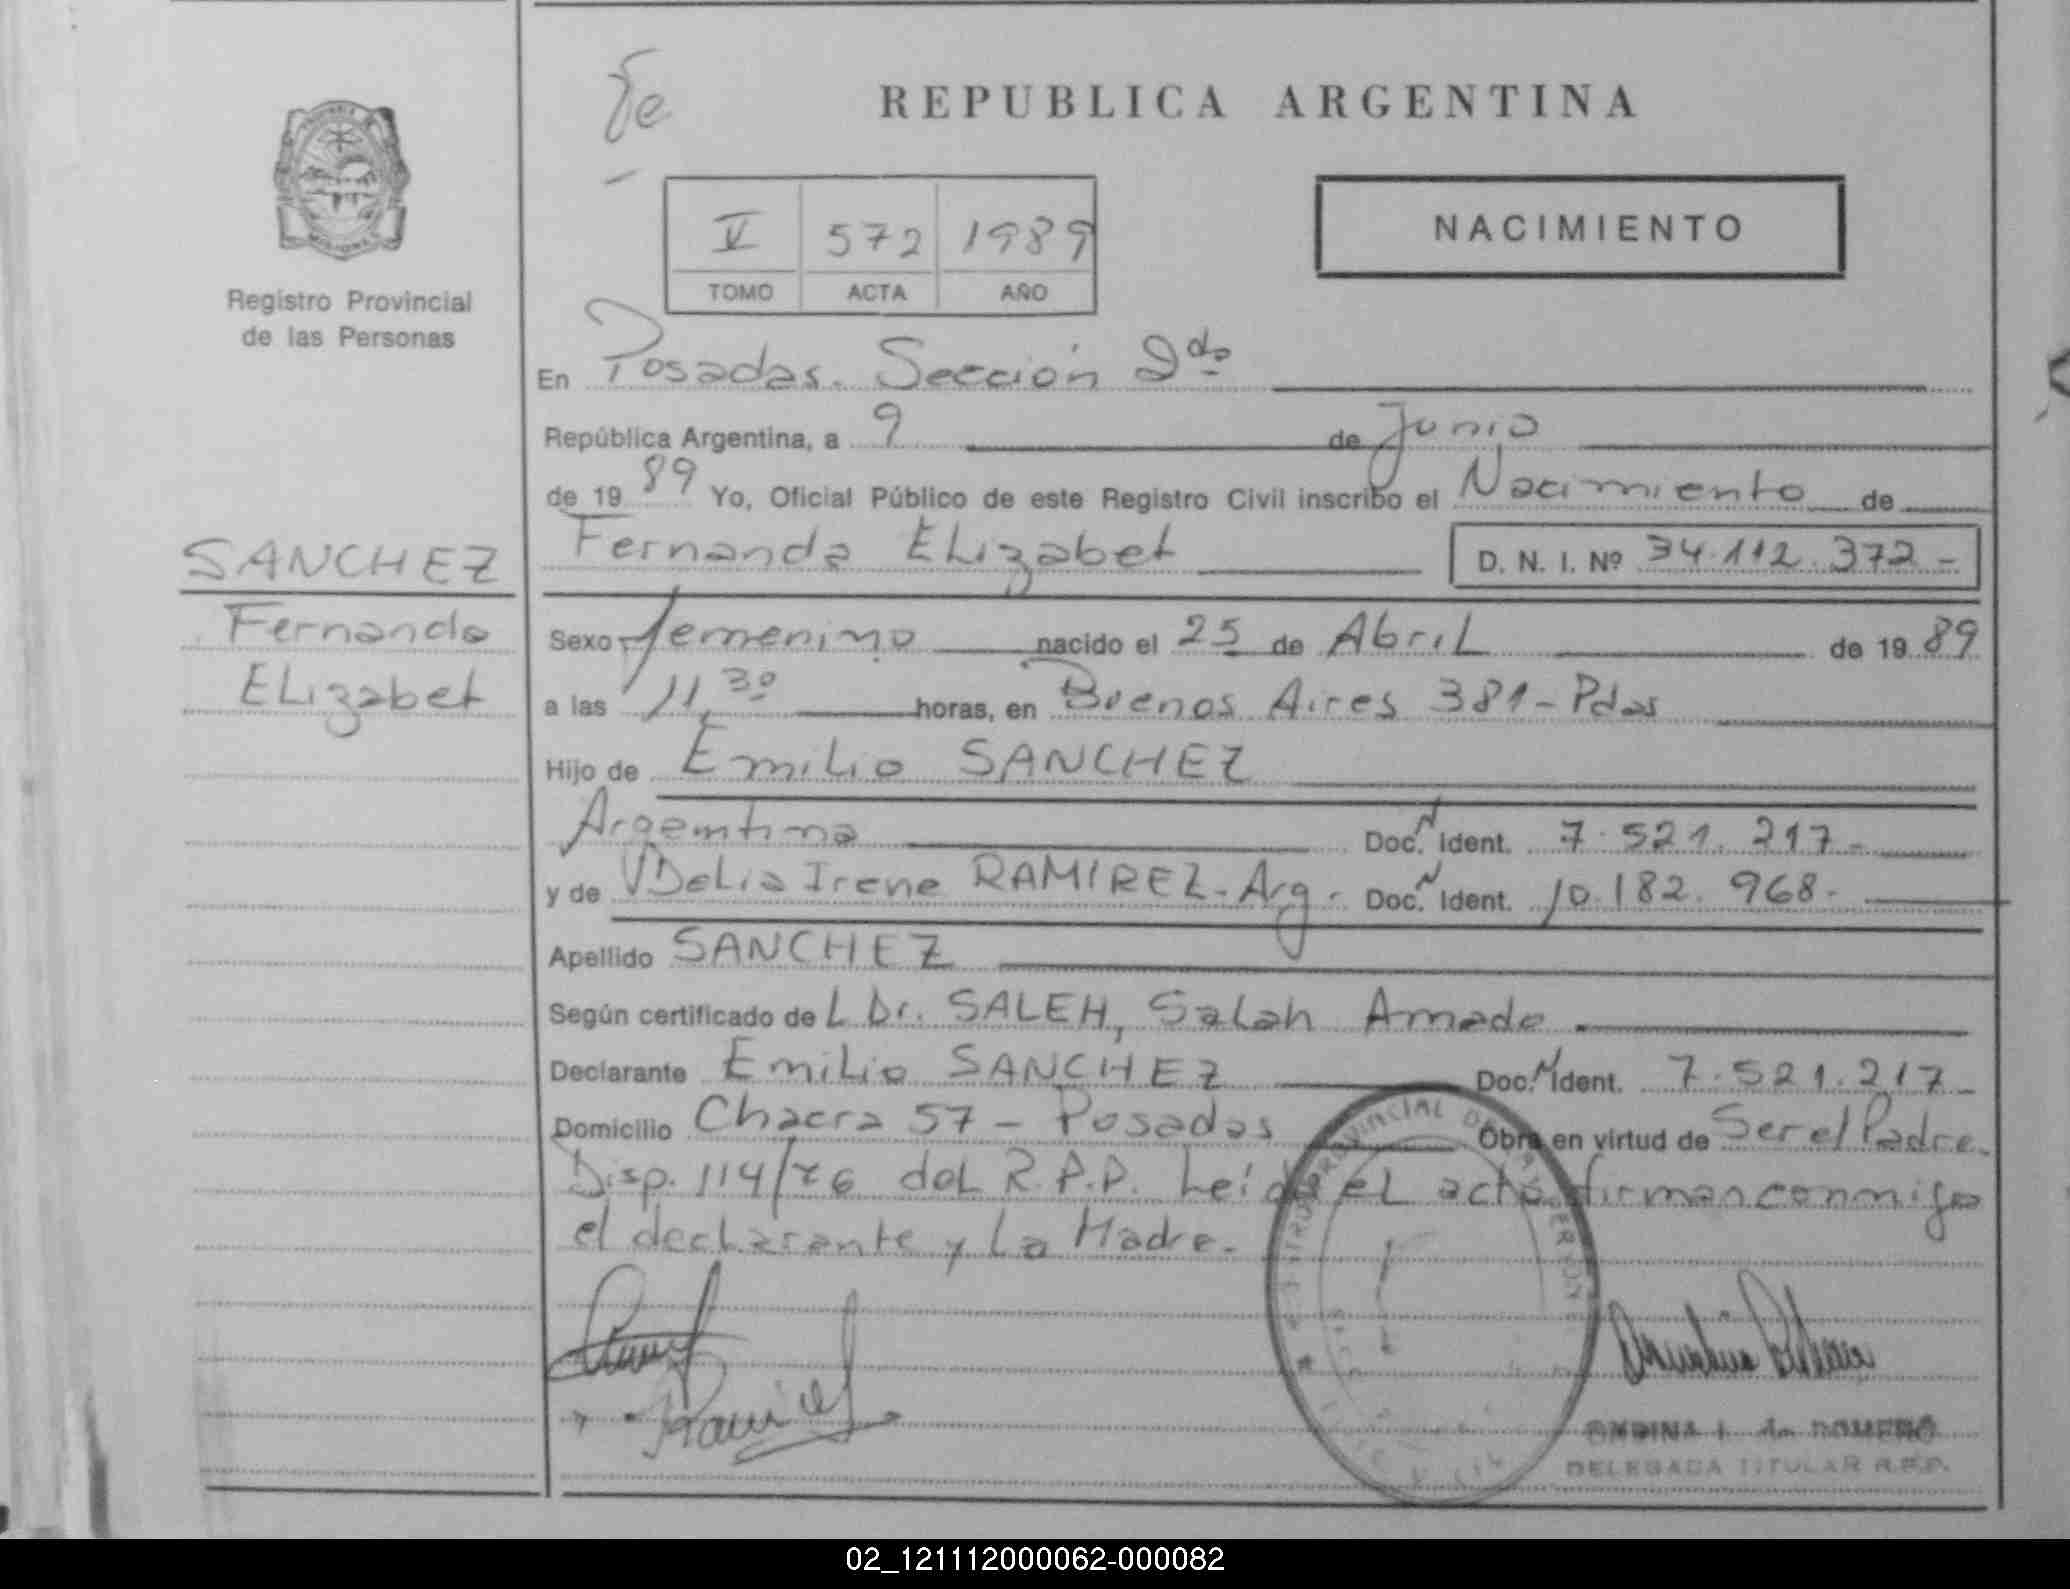 REPUBLICA ARGENTINA
NACIMIENTO
V 572 1989
TOMO ACTA AÑO
Registro Provincial
de las Personas
En Posadas. Sección 2da
República Argentina, a 9 de Junio
de 1989 Yo, Oficial Público de este Registro Civil inscribo el Nacimiento de
Fernanda ELizabet D. N. I. Nº 34.112.372-
SANCHEZ
Fernanda
ELizabet
Sexo femenino nacido el 25 de AbriL de 1989
a las 11,30 horas, en Buenos Aires 381-Pdas
Hijo de EmiLio SANCHEZ
Argentina Doc. N Ident. 7.521.217-
y de DeLia Irene RAMIREZ-Arg. Doc. N Ident. 10.182.968-
Apellido SANCHEZ
Según certificado de L Dr. SALEH, SaLah Amado
Declarante EmiLio SANCHEZ Doc. N Ident. 7.521.217-
Domicilio Chacra 57 - Posadas Obra en virtud de Ser el Padre.
Disp. 114/76 deL R.P.P. Leída eL acta firman conmigo
el decLarante y La Madre.
Ramirez
ONDINA I. de ROMERO
DELEGADA TITULAR R.P.P.
02_121112000062-000082